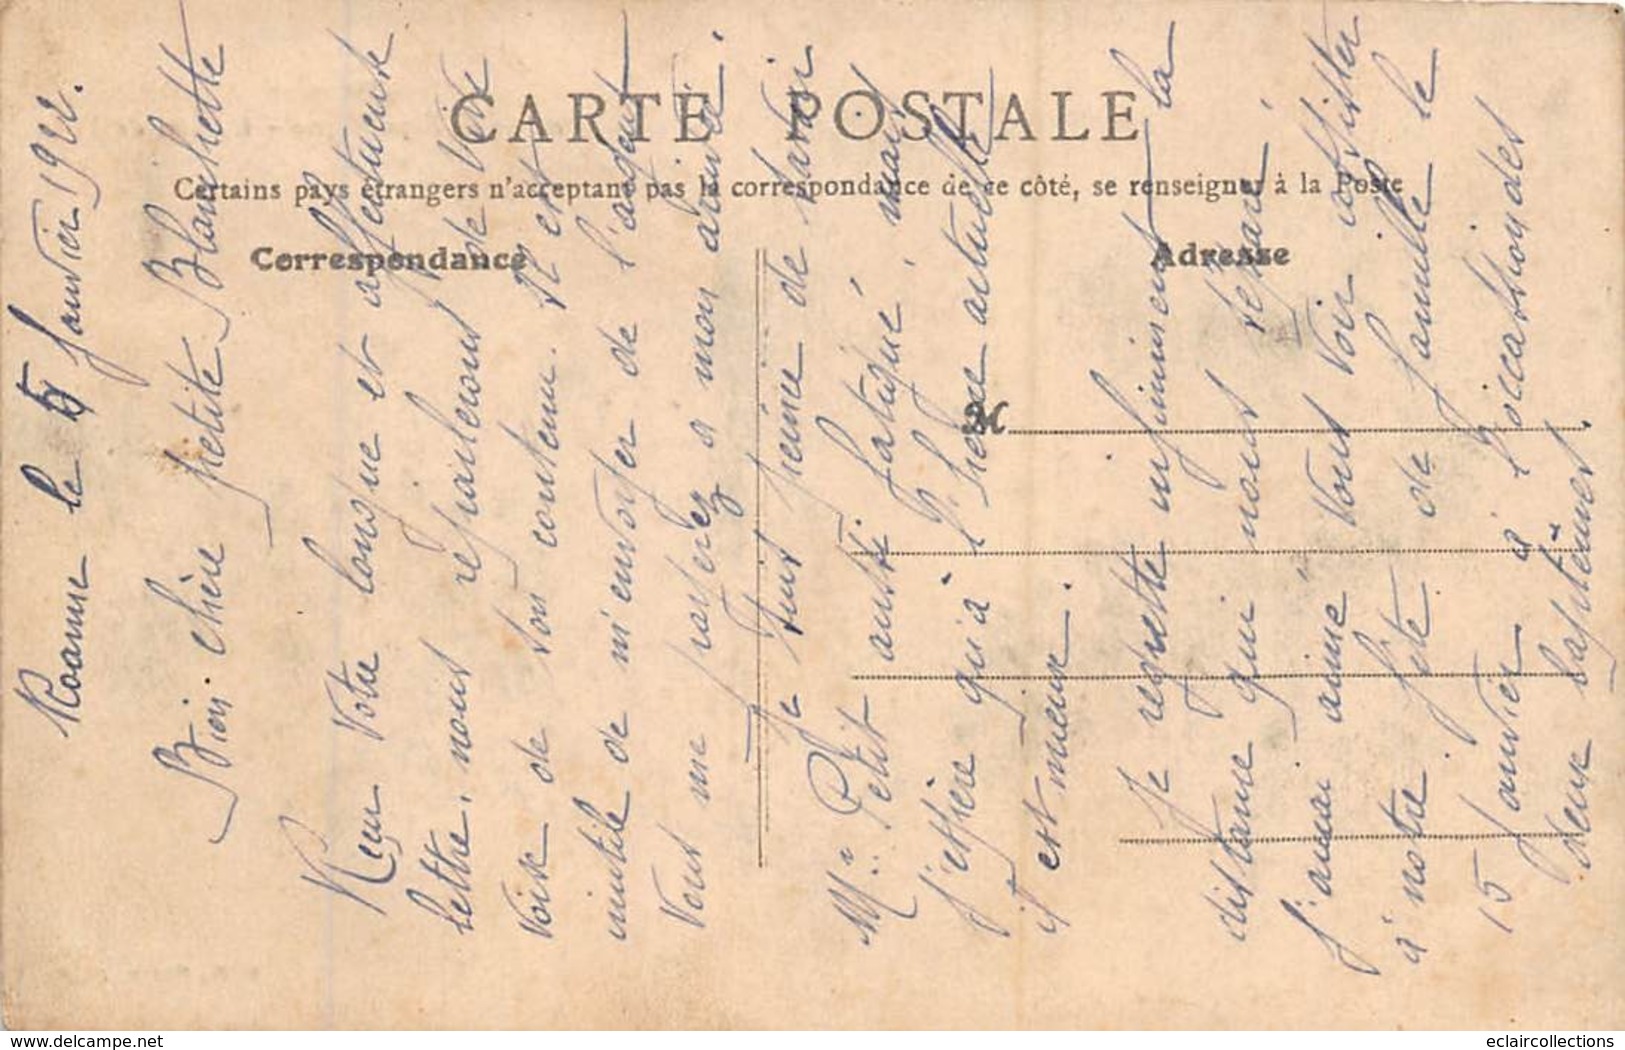 CARTE POSTALE
Certains pays étrangers n'acceptant pas la correspondance de ce côté, se renseigner à la Poste
Correspondance
Adresse
M
Roanne le 5 Janvier 1922.
Bien chère petite Blanchette
Reçu votre longue et affectueuse
lettre, nous reparlerons de vive
voix de son contenu. Il est
inutile de m'envoyer de l'argent
vous me payerez a mon arrivée.
Je suis peinée de savoir
Mr Petit aussi fatigué, mais
j'espère qu'à l'heure actuelle
il est mieux.
Je regrette infiniment la
distance qui nous sépare
j'aurai aimé vous voir assister
à notre fête de famille le
15 Janvier à l'occassion des
deux baptêmes.
delcampe.net
eclaircollections